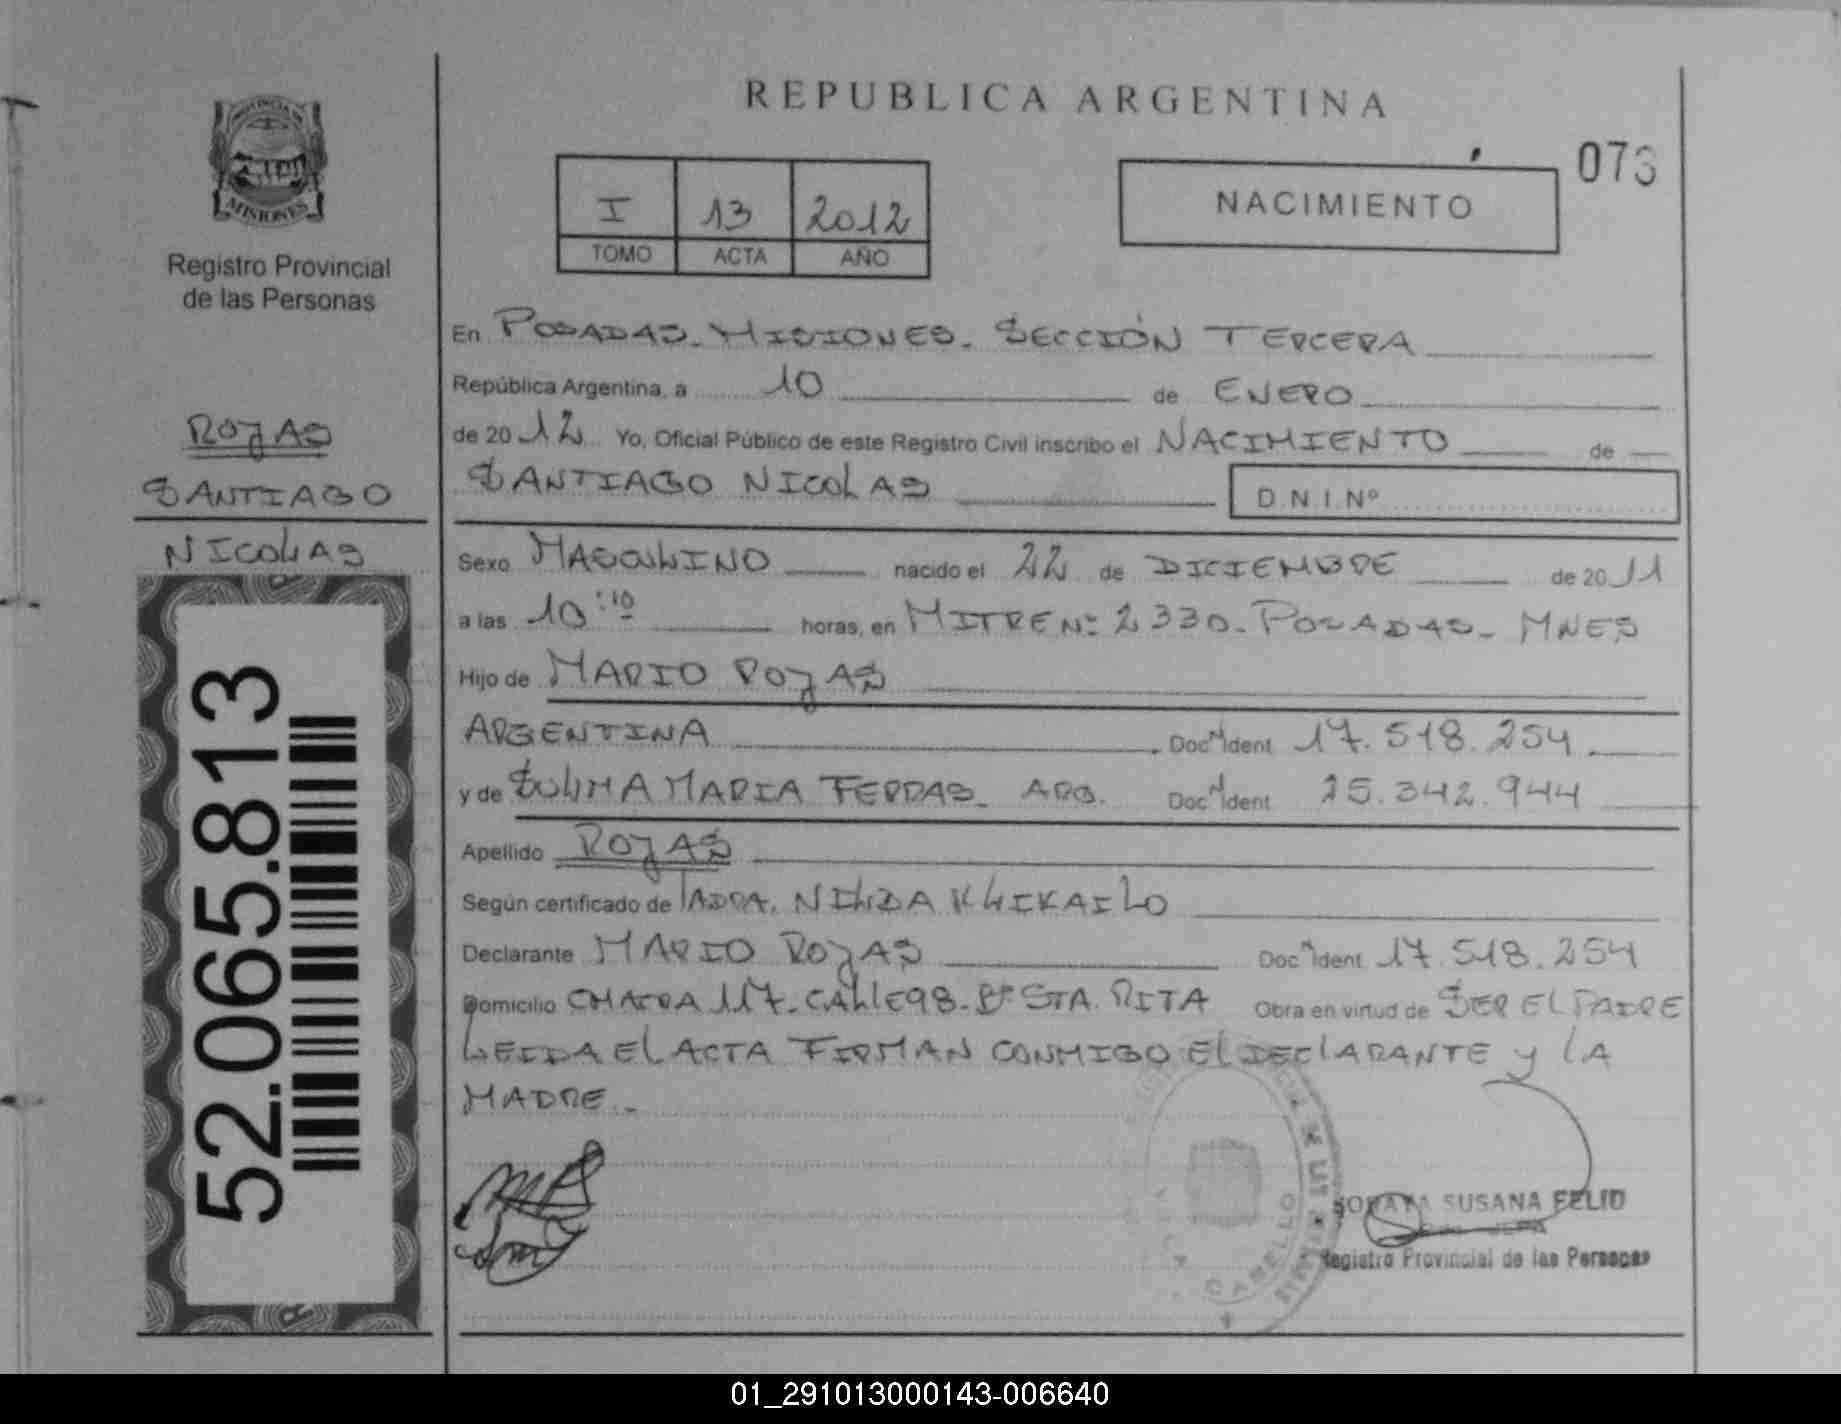 PROVINCIA DE
MISIONES
Registro Provincial
de las Personas
ROJAS
SANTIAGO
NICOLAS
52.065.813
REPUBLICA ARGENTINA
073
I 13 2012
TOMO ACTA AÑO
NACIMIENTO
En POSADAS. MISIONES. SECCIÓN TERCERA
República Argentina, a 10 de ENERO
de 2012 Yo, Oficial Público de este Registro Civil inscribo el NACIMIENTO de
SANTIAGO NICOLAS D.N.I.Nº
Sexo MASCULINO nacido el 22 de DICIEMBRE de 2011
a las 10:10 horas, en MITRE Nº 2330. POSADAS. MNES
Hijo de MARIO ROJAS
ARGENTINA Doc Ident 17.518.254
y de MARIA ARG. Doc Ident 25.342.944
Apellido ROJAS
Según certificado de NILDA
Declarante MARIO ROJAS Doc Ident 17.518.254
Domicilio CHACRA 117. CALLE 98. Bº STA. RITA Obra en virtud de SER EL PADRE
LEIDA EL ACTA FIRMAN CONMIGO EL DECLARANTE y LA
MADRE.
SORAYA SUSANA FELID
JEFA
Registro Provincial de las Personas
01_291013000143-006640